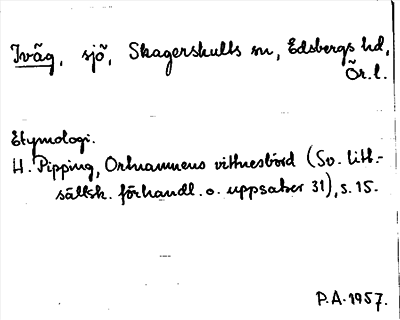 Iväg, sjö, Skagershults sn, Edsbergs hd,
Ör. l.
Etymologi.
H. Pipping, Ortnamnens vittnesbörd (Sv. litt.-
sällsk. förhandl. o. uppsatser 31), s. 15.
P.A. 1957.